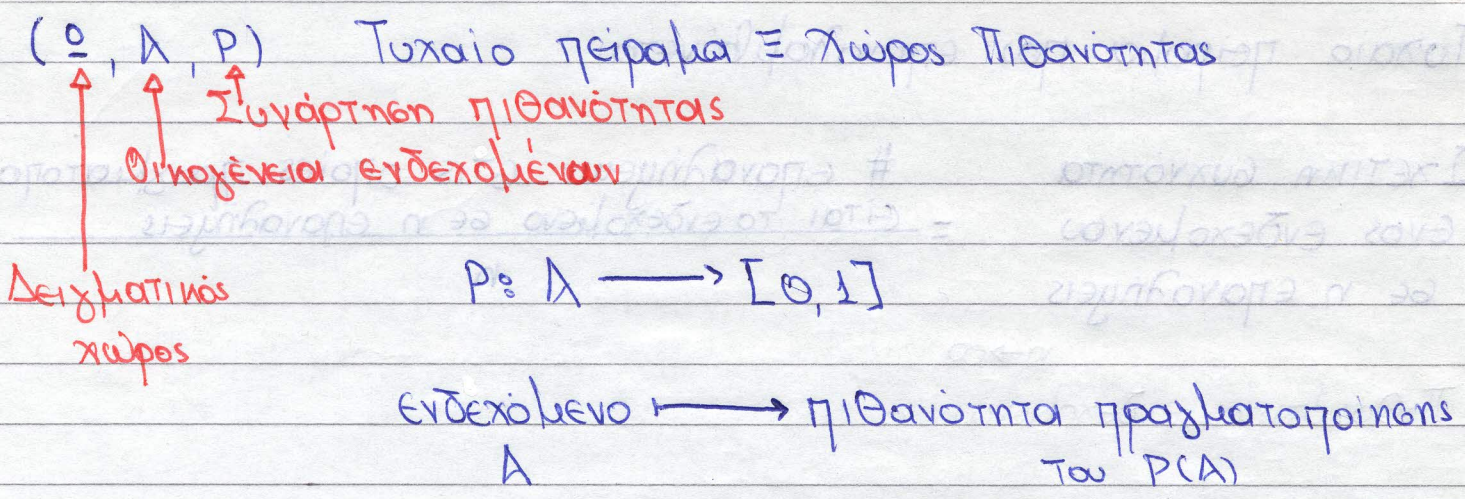 (Ω, A, P) Τυχαίο πείραμα ≡ Χώρος Πιθανότητας
Συνάρτηση πιθανότητας
Οικογένεια ενδεχομένων
Δειγματικός
χώρος
P: A → [0,1]
ενδεχόμενο ↦ πιθανότητα πραγματοποίησης
A του P(A)